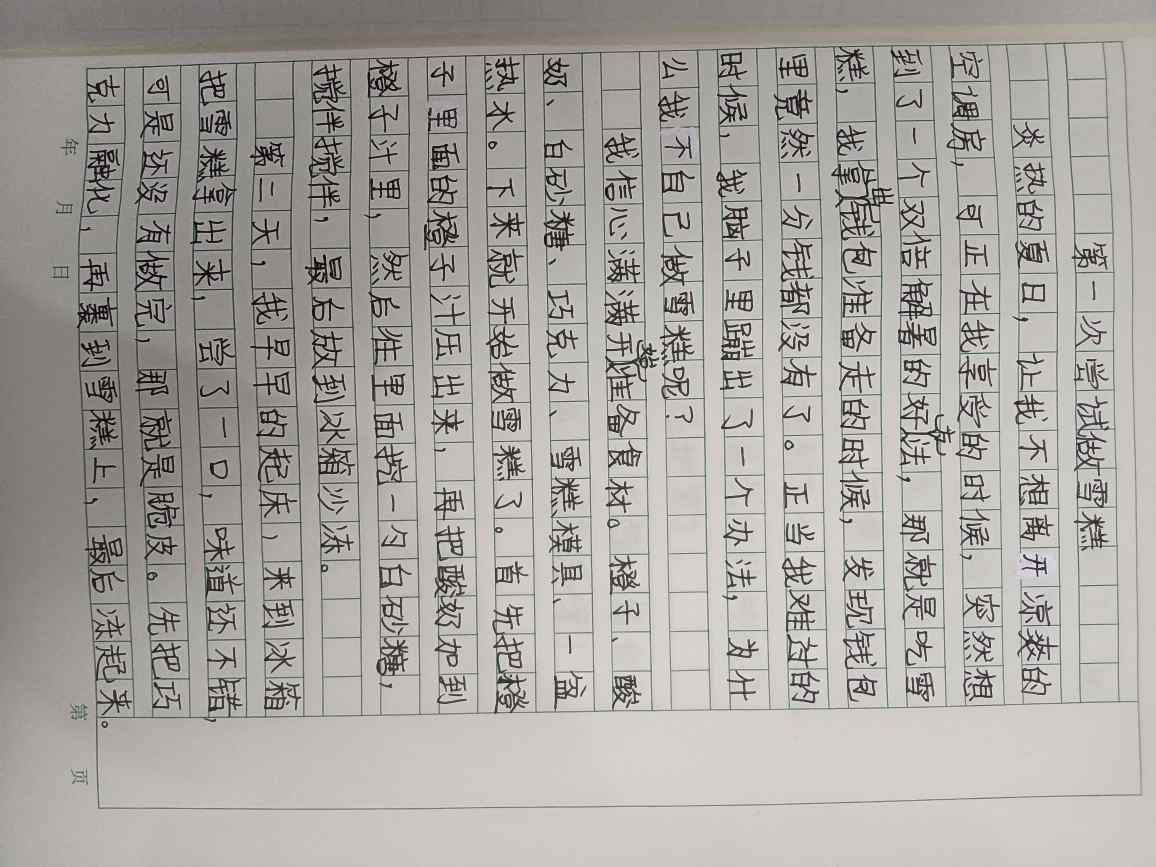 第一次尝试做雪糕
炎热的夏日，让我不想离开凉爽的
空调房，可正在我享受的时候，突然想
到了一个双倍解暑的好方法，那就是吃雪
糕，我拿出钱包准备走的时候，发现钱包
里竟然一分钱都没有了。正当我难过的
时候，我脑子里蹦出了一个办法，为什
么我不自己做雪糕呢？
我信心满满开始准备食材。橙子、酸
奶、白砂糖、巧克力、雪糕模具、一盆
热水。下来就开始做雪糕了。首先把橙
子里面的橙子汁压出来，再把酸奶加到
橙子汁里，然后往里面挖一勺白砂糖，
搅伴搅伴，最后放到冰箱冷冻。
第二天，我早早的起床，来到冰箱
把雪糕拿出来，尝了一口，味道还不错，
可是还没有做完，那就是脆皮。先把巧
克力融化，再裹到雪糕上，最后冻起来。
年 月 日
第 页